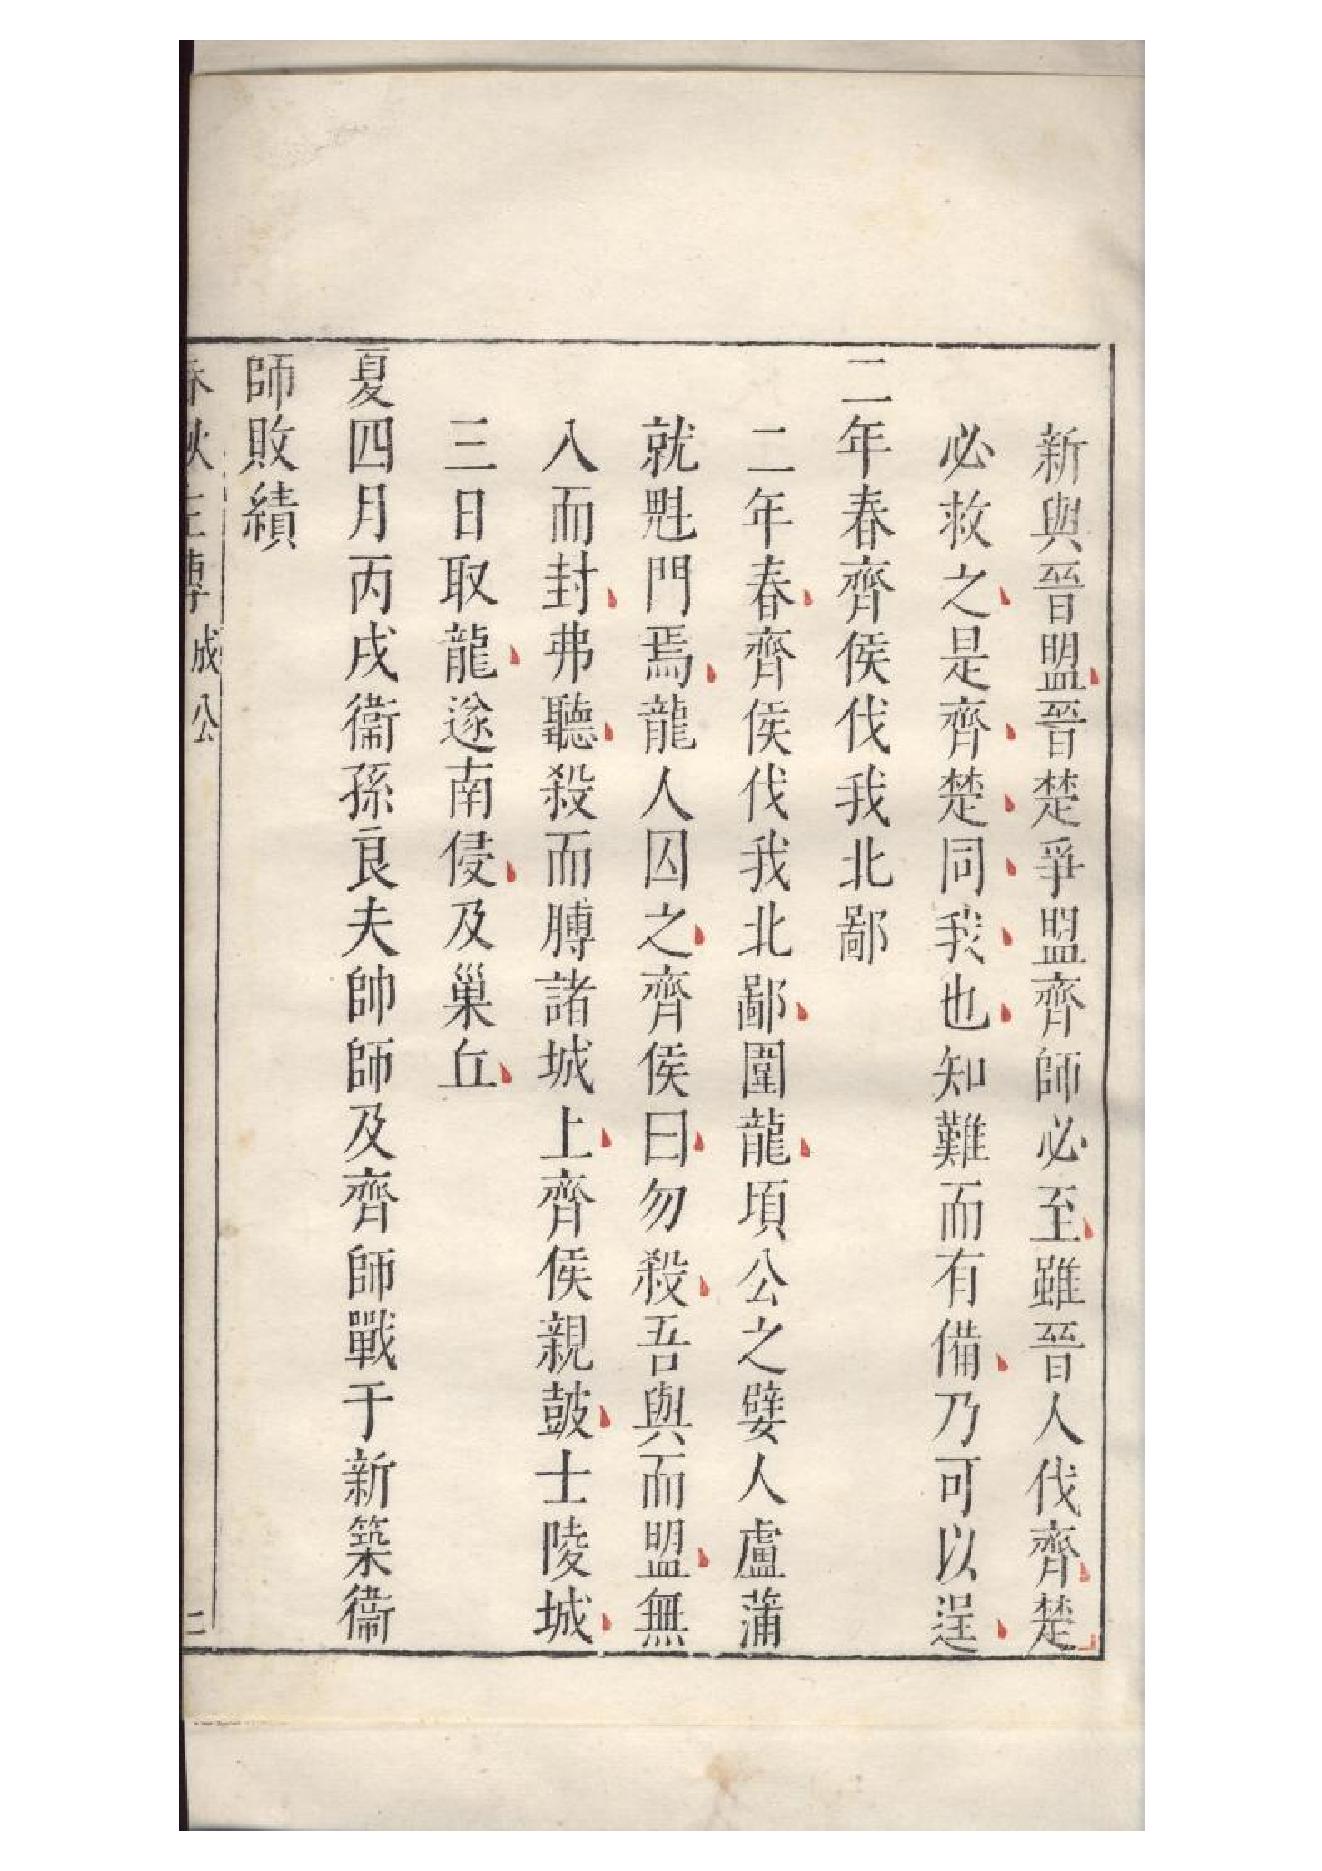 新與晉盟晉楚爭盟齊師必至雖晉人伐齊楚
必救之是齊楚同我也知難而有備乃可以逞
二年春齊侯伐我北鄙
二年春齊侯伐我北鄙圍龍頃公之嬖人盧蒲
就魁門焉龍人囚之齊侯曰勿殺吾與而盟無
入而封弗聽殺而膊諸城上齊侯親鼓士陵城
三日取龍遂南侵及巢丘
夏四月丙戌衞孫良夫帥師及齊師戰于新築衞
師敗績
春秋左傳 成公 二